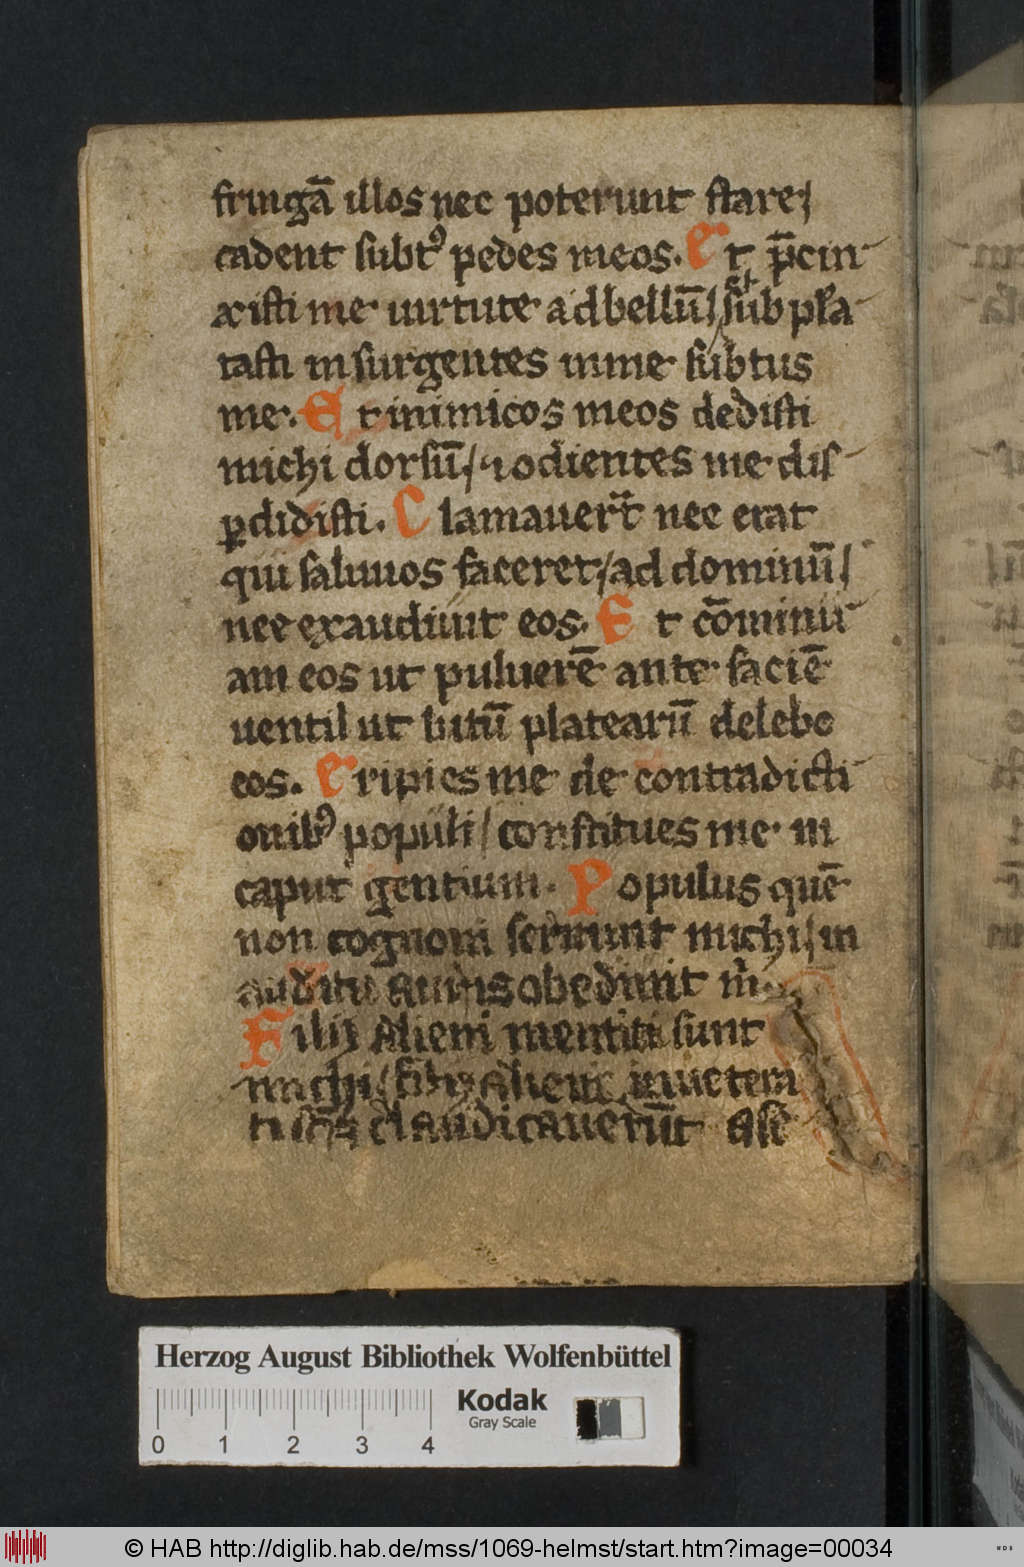 fringā illos nec poterunt stare/
cadent subtꝰ pedes meos. Et p̄cin
xisti me uirtute ad bellū/ et sub pla
tasti insurgentes in me subtus
me. Et inimicos meos dedisti
michi dorsū/ ⁊ odientes me dis
ꝑdidisti. Clamauer̄t nec erat
qui saluuos faceret/ ad dominū/
nec exaudiuit eos. Et cōminu
am eos ut puluerē ante faciē
uenti/ ut lutū platearū delebo
eos. Eripies me de contradicti
onibꝰ populi/ constitues me in
caput gentium. Populus quē
non cognoui seruiunt michi/ in
auditu auris obediuit m̄.
Filij alieni mentiti sunt
michi/ filij alieni inuetera
ti st̄ ⁊ claudicauerūt a se
Herzog August Bibliothek Wolfenbüttel
Kodak
Gray Scale
0 1 2 3 4
© HAB http://diglib.hab.de/mss/1069-helmst/start.htm?image=00034